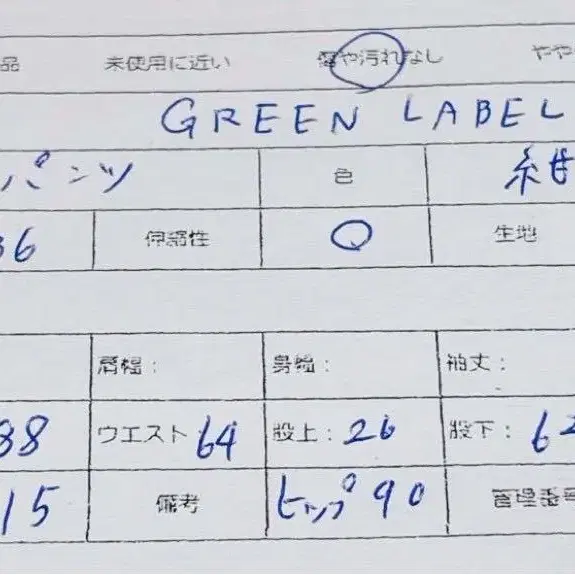 品 未使用に近い 傷や汚れなし やや
GREEN LABEL
パンツ 色 紺
36 伸縮性 ○ 生地
肩幅： 身幅： 袖丈：
88 ウエスト 64 股上：26 股下：62
15 備考 ヒップ 90 管理番号